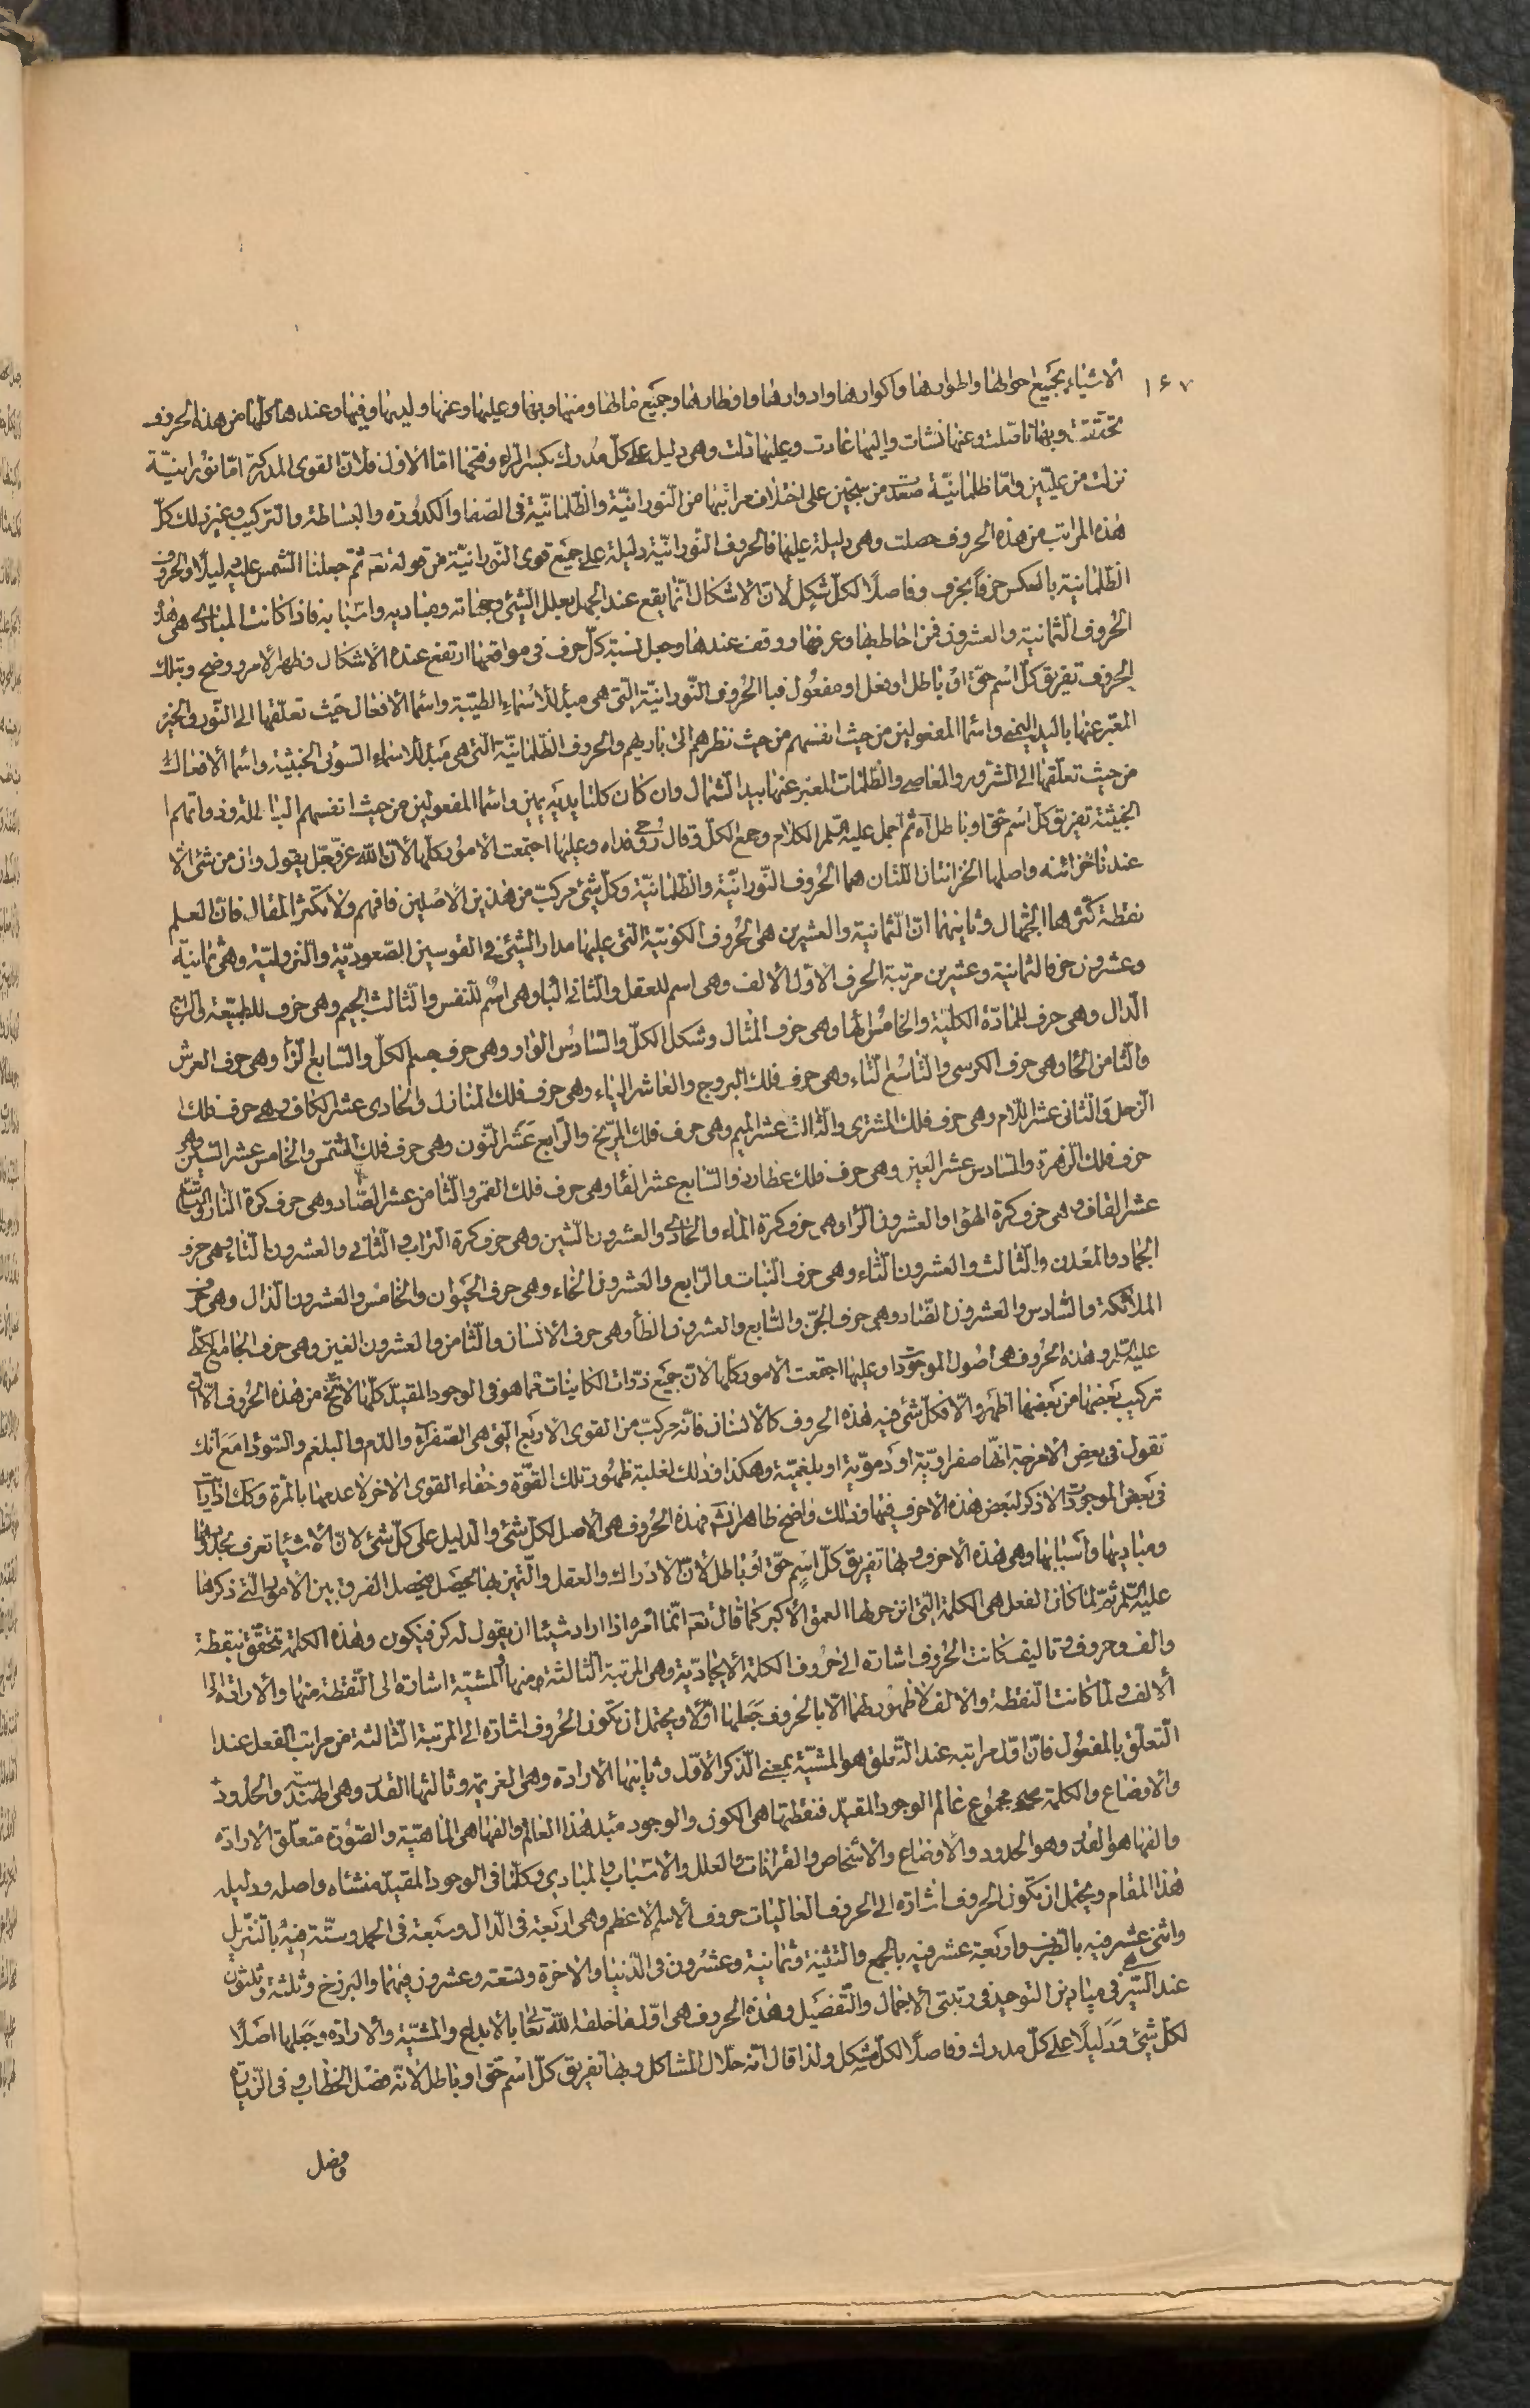 ١۶٧
الاشياء بجميع احوالها واطوارها واكوارها وادوارها واوطارها وجميع ما لها ومنها وبها وعليها وعنها ولديها وفيها وعندها كلها من هذه الحروف
تحققت وبها تاصلت وعنها نشات واليها عادت وعليها دلت وهى دليل على كل مدرك بكسر الراء وفتحها اما الاول فلان القوى المدركة اما نورانية
نزلت من عليين واما ظلمانية صعدت من سجين على اختلاف مراتبها من النورانية والظلمانية فى الصفا والكدورة والبساطة والتركيب وغير ذلك كل
هذه المراتب من هذه الحروف حصلت وهى دليلة عليها فالحروف النورانية دليلة على جميع قوى النورانية من قوله تعالى ثم جعلنا الشمس عليه دليلا والحروف
الظلمانية بالعكس حرفا بحرف وفاصلا لكل مشكل لان الاشكال انما يقع عند الجهل بعلل الشيئ وجهاته ومباديه واسبابه فاذا كانت المبادى هى هذه
الحروف الثمانية والعشرون فمن احاط بها وعرفها ووقف عندها وجعل نسبة كل حرف فى مواقعها ارتفع عنده الاشكال وظهر الامر ووضح وبتلك
الحروف تفريق كل اسم حق او باطل او فعل او مفعول فبا الحروف النورانية التى هى مبدأ للاسماء الطيبة واسما الافعال حيث تعلقها الى النور والخير
المعبر عنها باليد اليمنى واسما المفعولين من حيث انفسهم من حيث نظرهم الى باريهم والحروف الظلمانية التى هى مبدأ للاسماء السوئى الخبيثية واسما الافعال
من حيث تعلقها الى الشرور والمعاصى والظلمات المعبر عنها بيد الشمال وان كان كلتا يديه يمين واسما المفعولين من حيث انفسهم الباطلة وذواتهم
الخبيثة تفريق كل اسم حق او باطل اه ثم اجمل عليه السلم الكلام وجمع الكل وقال روحى فداه وعليها اجتمعت الامور كلها لان الله عز وجل يقول وان من شئ الا
عندنا خزائنه واصلها الخزانتان اللتان هما الحروف النورانية والظلمانية وكل شئ مركب من هذين الاصلين فافهم ولا تكثر المقال فان العلم
نقطة كثرها الجهال وثانيهما ان الثمانية والعشرين هى الحروف الكونية التى عليها مدار الشيئ فى القوسين الصعودية والنزولية وهى ثمانية
وعشرون حرفا لثمانية وعشرين مرتبة الحرف الاول الالف وهى اسم للعقل والثانى الباء وهى اسم للنفس والثالث الجيم وهى حرف للطبيعة والرابع
الدال وهى حرف للمادة الكلية والخامس الهاء وهى حرف المثال وشكل الكل والسادس الواو وهى حرف جسم الكل والسابع الزاء وهى حرف العرش
والثامن الحاء وهى حرف الكرسى والتاسع الثاء وهى حرف فلك البروج والعاشر الياء وهى حرف فلك المنازل والحادى عشر الكاف وهى حرف فلك
الزحل والثانى عشر اللام وهى حرف فلك المشترى والثالث عشر الميم وهى حرف فلك المريخ والرابع عشر النون وهى حرف فلك الشمس والخامس عشر السين وهى
حرف فلك الزهرة والسادس عشر العين وهى حرف فلك عطارد والسابع عشر الفاء وهى حرف فلك القمر والثامن عشر الصاد وهى حرف كرة النار والتاسع
عشر القاف وهى حرف كرة الهوا والعشرون الراء وهى حرف كرة الماء والحادى والعشرون الشين وهى حرف كرة التراب والثانى والعشرون التاء وهى حرف
الجماد والمعدن والثالث والعشرون الثاء وهى حرف النبات والرابع والعشرون الخاء وهى حرف الحيوان والخامس والعشرون الذال وهى حرف
الملائكة والسادس والعشرون الضاد وهى حرف الجن والسابع والعشرون الظاء وهى حرف الانسان والثامن والعشرون الغين وهى حرف الجامع
عليه السلم وهذه الحروف هى اصول الموجودات وعليها اجتمعت الامور كلها لان جميع ذرات الكاينات مما هو فى الوجود المقيد كلها لا تخ من هذه الحروف الا ان
تركيب بعضها من بعضها اظهر والا فكل شئ فيه هذه الحروف كالانسان فانه مركب من القوى الاربع التى هى الصفراء والدم والبلغم والسودا مع انك
تقول فى بعض الامزجة انها صفراوية او دموية او بلغمية وهكذا وذلك لغلبة ظهور تلك القوة وخفاء القوى الاخر لا عدمها بالمرة وكك اذا
فى بعض الموجودات الا ذكر لبعض هذه الاحرف فيها وذلك واضح ظاهر فهذه الحروف هى الاصل لكل شئ والدليل على كل شئ لان الاشياء تعرف بحدودها
ومباديها واسبابها وهى هذه الاحرف وبها تفريق كل اسم حق او باطل لان الادراك والعقل والتميز بها يحصل فيحصل الفرق بين الامور التى ذكرها
عليه السلم ثم لما كان الفعل هى الكلمة التى انزجر لها العمق الاكبر كما قال تعالى انما امره اذا اراد شيئا ان يقول له كن فيكون وهذه الكلمة تتحقق بنقطة
والف وحروف وتاليف كانت الحروف اشارة الى حروف الكلمة الايجادية وهى المرتبة الثالثة منها والمشية اشارة الى النقطة منها والارادة الى
الالف ولما كانت النقطة والالف لا ظهور لهما الا بالحروف جعلها اولا ويحتمل ان تكون الحروف اشارة الى المرتبة الثالثة من مراتب الفعل عند
التعلق بالمفعول فان اول مراتبه عند التعلق هو المشية بمعنى الذكر الاول وثانيها الارادة وهى العزيمة وثالثها القدر وهى الهندسة والحدود
والاوضاع والكلمة مجموع عالم الوجود المقيد فنقطتها هى الكون والوجود مبدء هذا العالم والفها هى الماهية والصورة متعلق الارادة
والفها هو القدر وهو الحدود والاوضاع والاشخاص والقرانات والعلل والاسباب والمبادى وكلما فى الوجود المقيد منشاه واصله ودليله
هذا المقام ويحتمل ان تكون الحروف اشارة الى الحروف العاليات حروف الاسم الاعظم وهى اربعة فى الدال وسبعة فى الحمد وستة فيه بالتنزيل
واثنى عشر فيه بالظرف واربعة عشر فيه بالجمع والتثنية وثمانية وعشرون فى الدنيا والاخرة وتسعة وعشرون فيهما والبرزخ وثلثة وثلثون
عند السير فى ميادين التوحيد فى رتبتى الاجمال والتفصيل وهذه الحروف هى اول ما خلقه الله تعالى بالابداع والمشية والارادة وجعلها اصلا
لكل شئ ودليلا على كل مدرك وفاصلا لكل مشكل ولذا قال انه حلال المشاكل وبها تفريق كل اسم حق او باطل لانه فصل الخطاب وفى الزيارة
وفصل